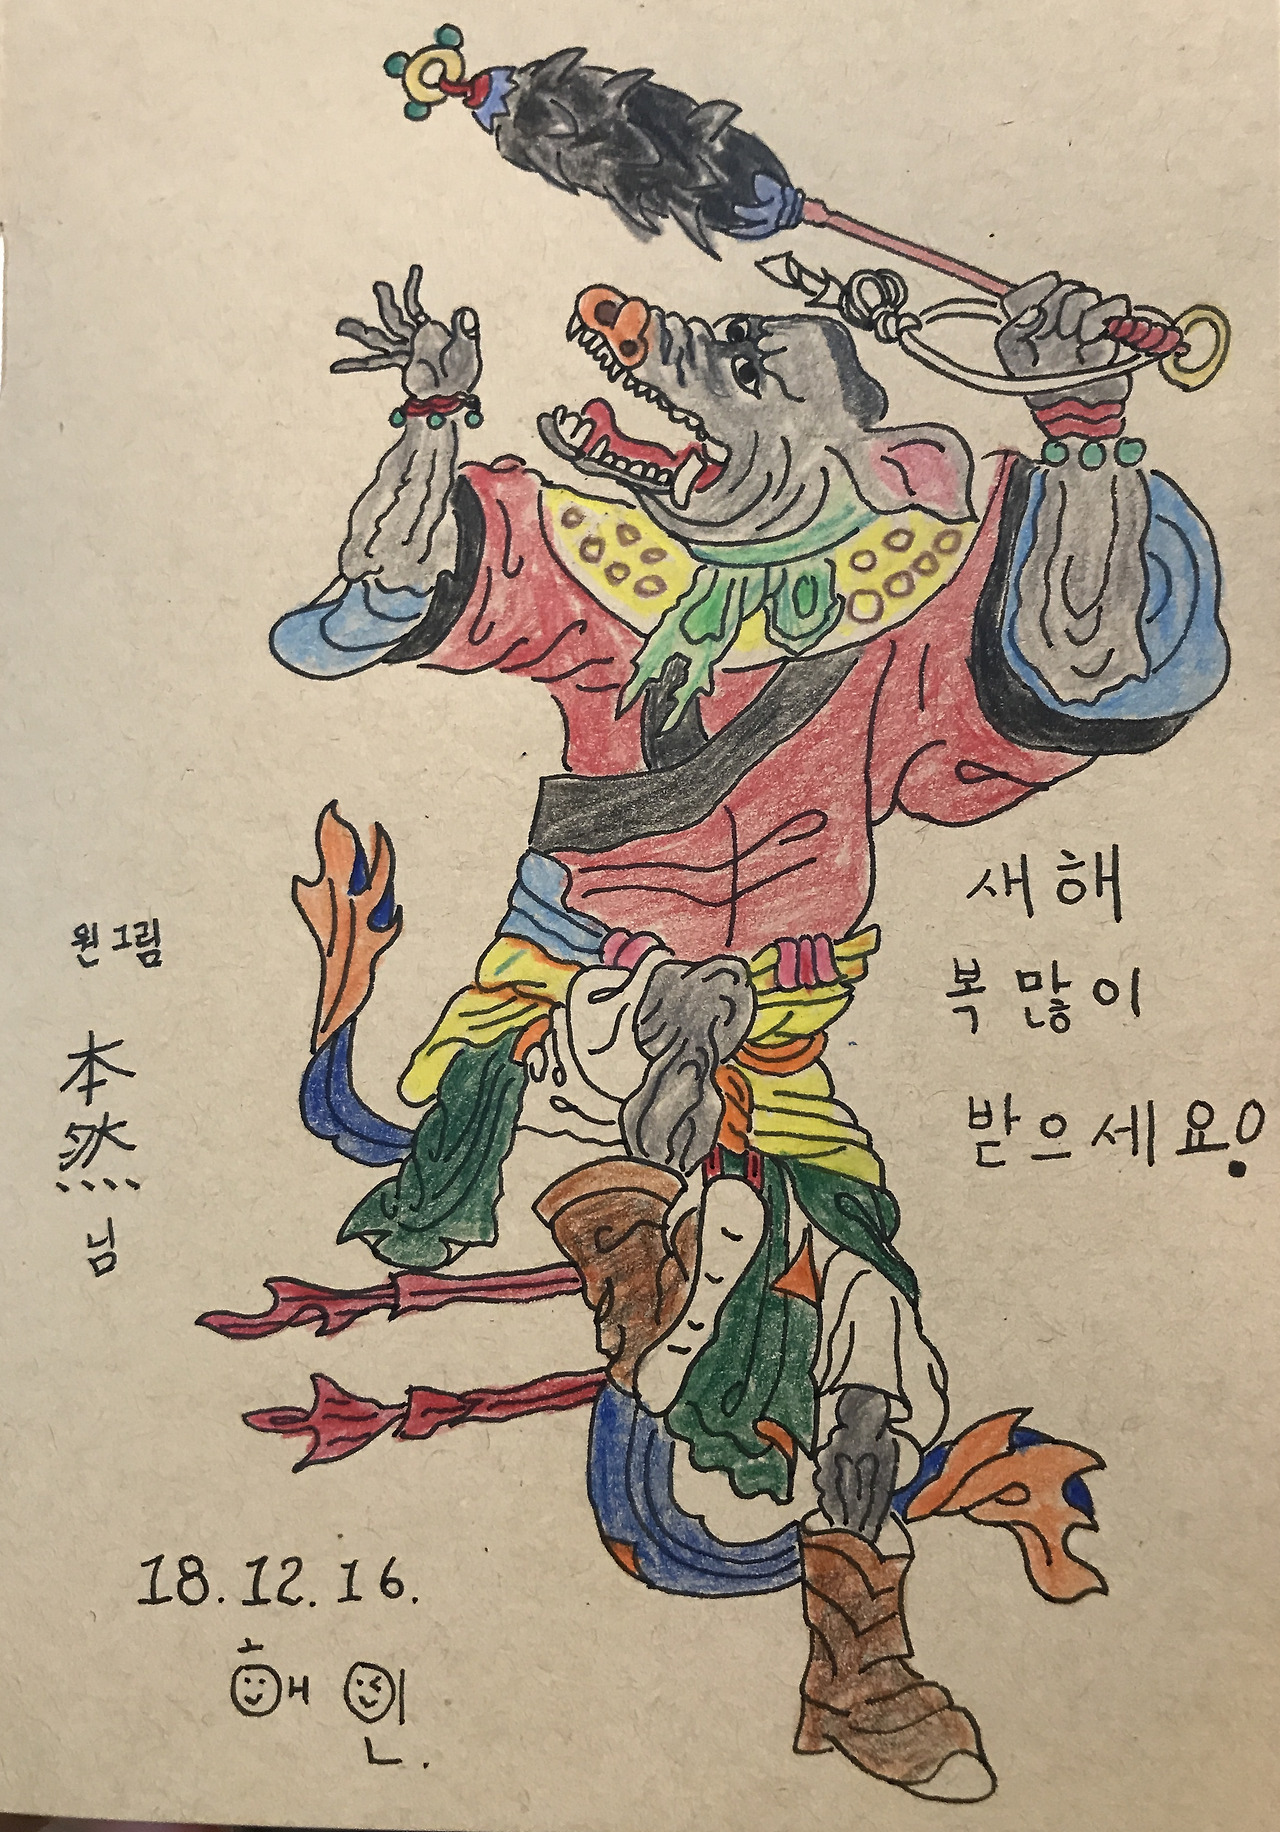 새해
복 많이
받으세요!
원그림
本
然
님
18.12.16.
해인.